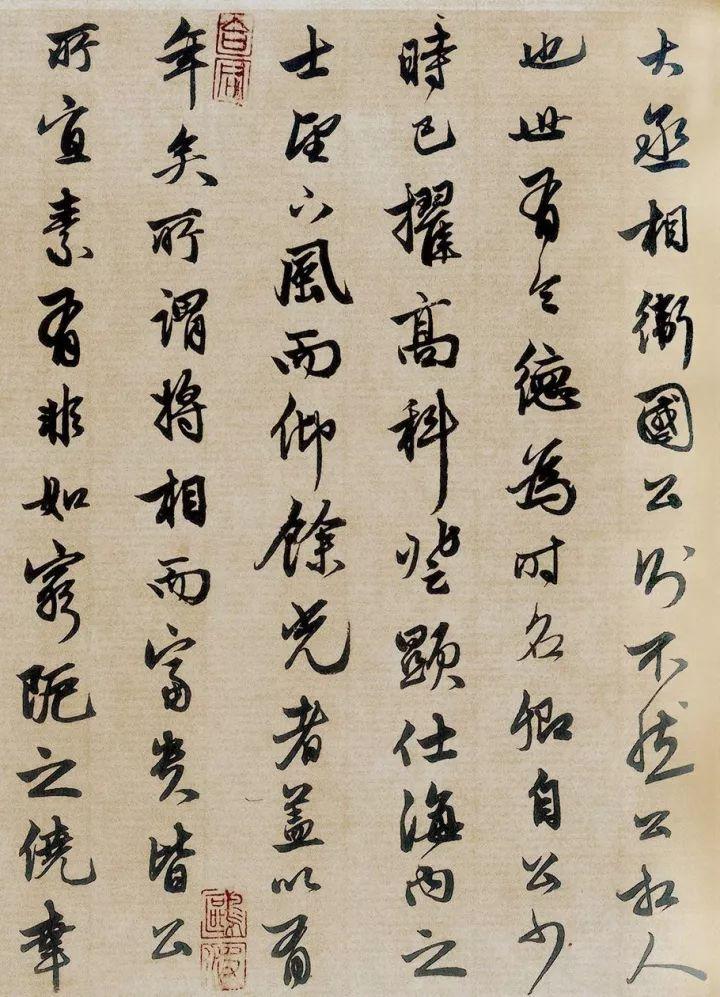 大丞相衛國公則不然公相人
也世有令德為時名卿自公少
時已擢高科登顯仕海內之
士望下風而仰餘光者蓋以有
年矣所謂將相而富貴皆公
所宜素有非如窮阨之僥幸